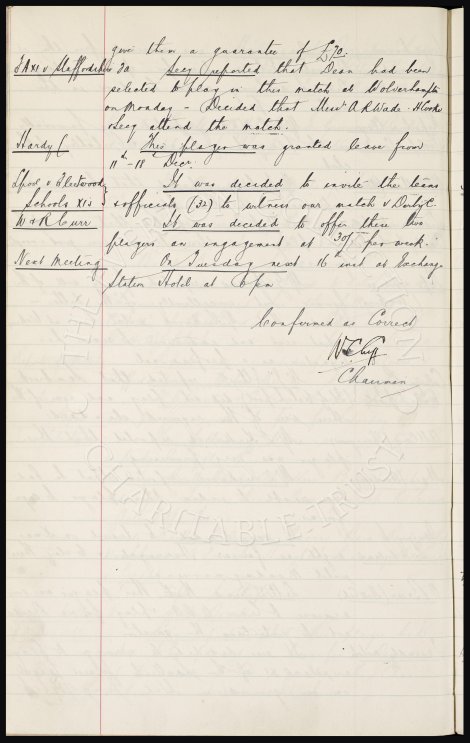 give them a guarantee of £70.
FA XI v Staffordshire FA Secy reported that Dean had been
selected to play in this match at Wolverhampton
on Monday - Decided that Messrs A R Wade H Cooke
& Secy attend the match.
Hardy C This player was granted leave from
11th - 18th Decr.
L'pool v Fleetwood It was decided to invite the teams
Schools XIs & officials (32) to witness our match v Derby C.
W & R Curr It was decided to offer these two
players an engagement at 30/- per week.
Next Meeting On Tuesday next 16th inst at Exchange
Station Hotel at 6 pm
Confirmed as Correct
W C Cuff
Chairman
THE
CHARITABLE TRUST